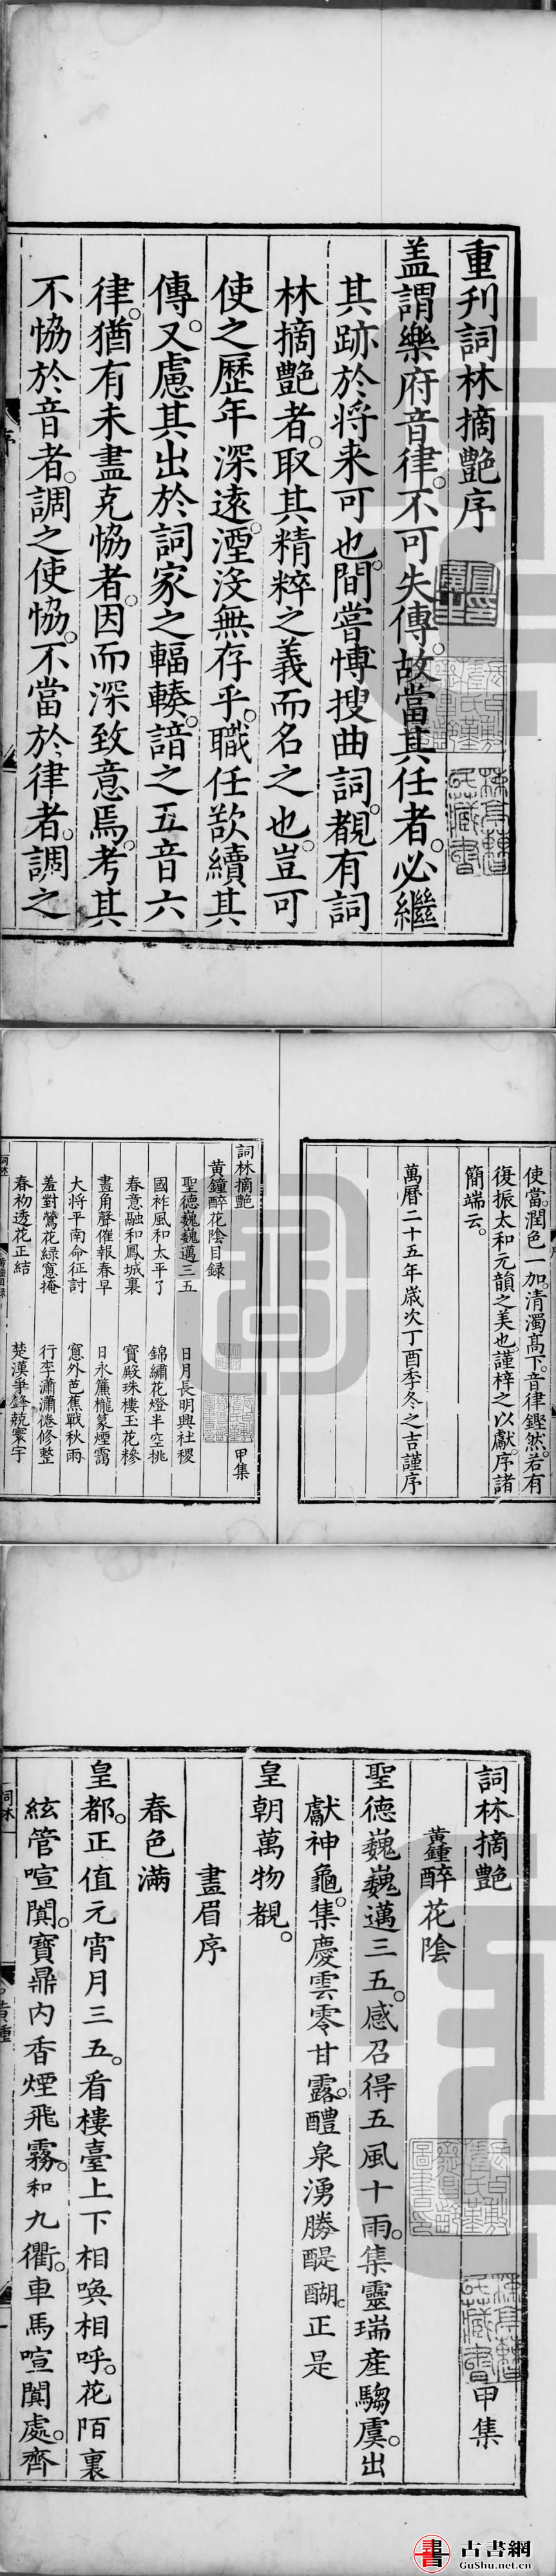 重刋詞林摘艷序
盖謂樂府音律不可失傳故當其任者必繼
其跡於将来可也間嘗愽搜曲詞覩有詞
林摘艷者取其精粹之義而名之也豈可
使之歷年深遠湮没無存乎職任欲續其
傳又慮其出於詞家之輻輳諳之五音六
律猶有未盡克恊者因而深致意焉考其
不恊於音者調之使恊不當於律者調之
使當潤色一加清濁髙下音律鏗然若有
復振太和元韻之美也謹梓之以獻序諸
簡端云
萬曆二十五年嵗次丁酉季冬之吉謹序
詞林摘艷 甲集
黄鐘醉花陰目録
聖德巍巍邁三五 日月長明興社稷
國祚風和太平了 錦繡花燈半空挑
春意融和鳳城裏 寶殿珠樓玉花糝
畫角聲催報春早 日永簾櫳篆煙靄
大将平南命征討 窻外芭蕉戰秋雨
羞對鶯花緑窻掩 行李瀟瀟倦修整
春初透花正結 楚漢爭鋒競寰宇
詞林摘艷 甲集
黄鐘醉花陰
聖德巍巍邁三五。感召得五風十雨。集靈瑞產騶虞。出
獻神龜。集慶雲零甘露。醴泉湧勝醍醐。正是
皇朝萬物覩。
畫眉序
春色滿
皇都。正值元宵月三五。看樓臺上下相喚相呼。花陌裏
絃管喧闐。寶鼎内香煙飛霧。和九衢。車馬喧闐處。齊
古書網
GuShu.net.cn